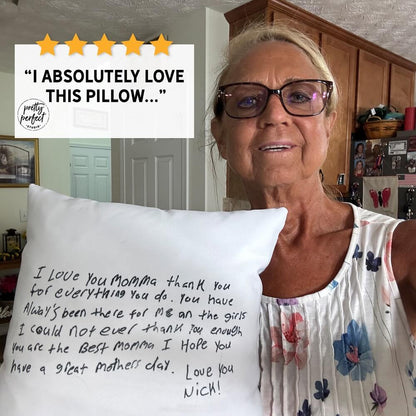 “I ABSOLUTELY LOVE
THIS PILLOW...”
pretty
perfect
STUDIO
I Love You MOMMA thank You
for everything You do. You have
Always been there for Me an the girls
I could not ever thank you enough
You are the Best Momma I Hope You
have a great Mothers day.
Love You
Nick!